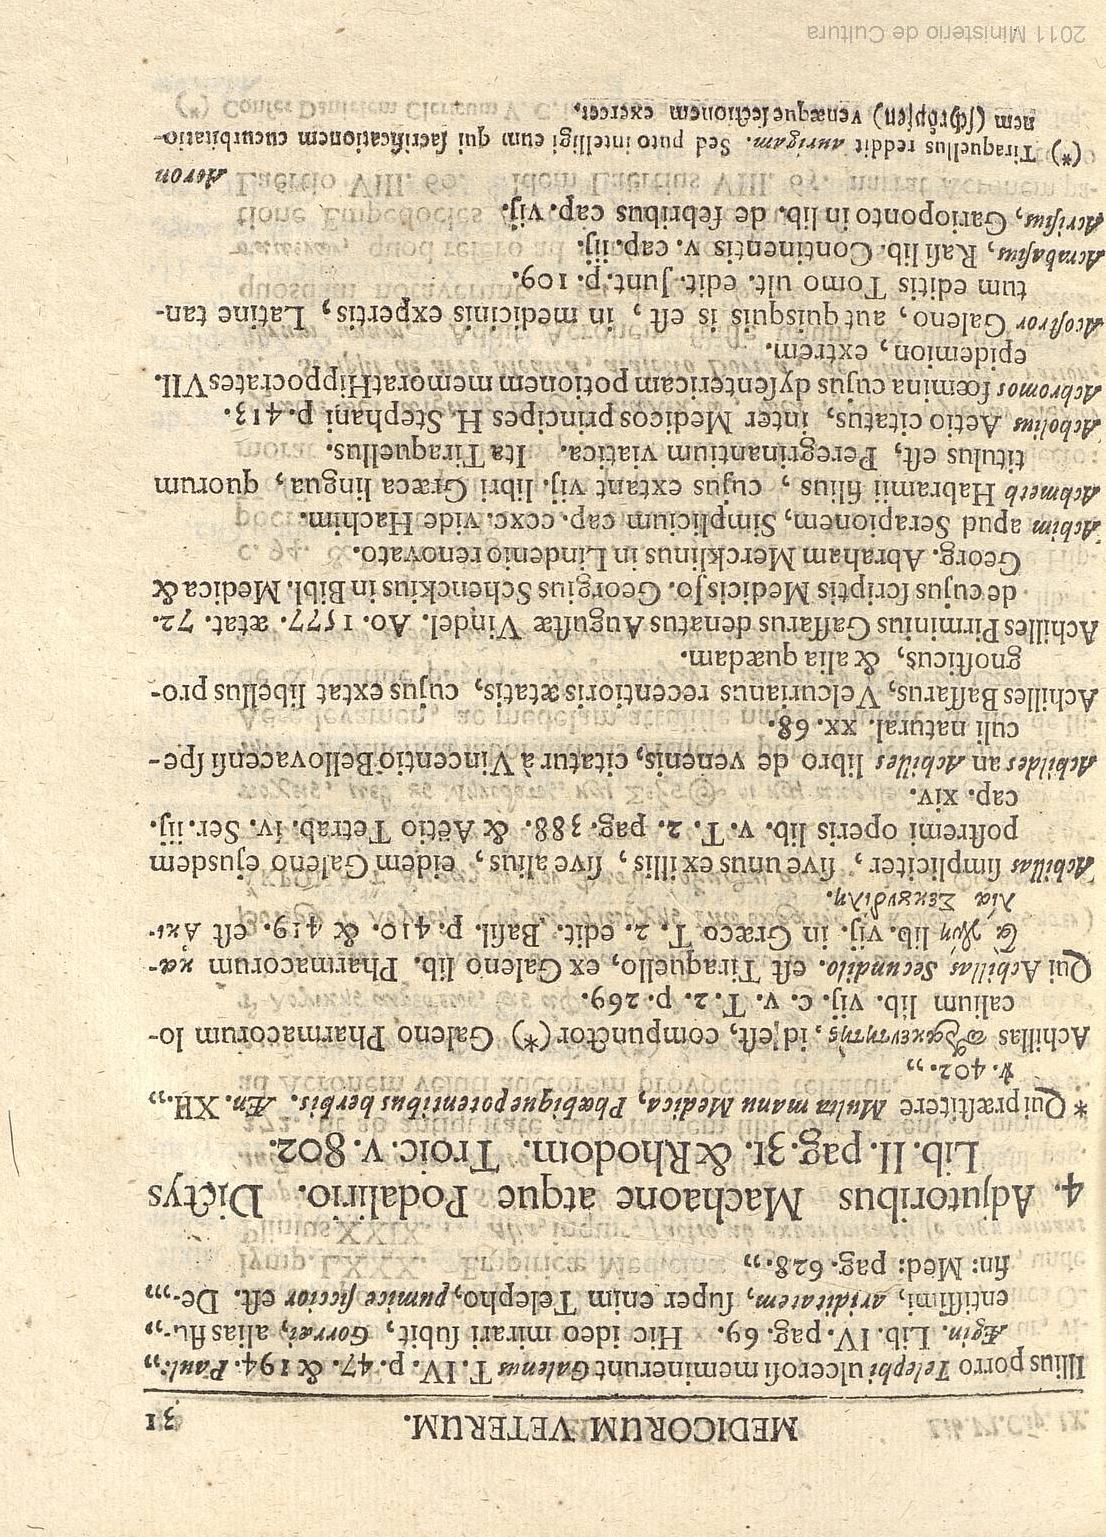 MEDICORUM VETERUM. 31
Illius porro Telephi ulcerosi meminerunt Galenus T. IV. p. 47. & 194. Paul. „
Ægin. Lib. IV. pag. 69. Hic ideo mirari subit, Gorræi, alias flu- „
entissimi, ariditatem, super enim Telepho, pumice siccior est. De- „
fin: Med: pag. 628. „
4. Adjutoribus Machaone atque Podalirio. Dictys
Lib. II. pag. 31. & Rhodom. Troic. v. 802.
* Qui præstitere Multa manu Medica, Phœbique potentibus herbis. Æn. XII. „
℣. 402. „
Achillas id est, compunctor (*) Galeno Pharmacorum lo-
calium lib. vij. c. v. T. 2. p. 269.
Qui Achillas Secundilo. est Tiraquello, ex Galeno lib. Pharmacorum κα-
lib. vij. in Græco T. 2. edit. Basil. p. 410. & 419. est Ἀκι-
λία Σεκενδίλη.
Achillas simpliciter, sive unus ex illis, sive alius, eidem Galeno ejusdem
postremi operis lib. v. T. 2. pag. 388. & Aëtio Tetrab. iv. Ser. iij.
cap. xiv.
Achildes an Achilles libro de venenis, citatur à Vincentio Bellovacensi spe-
culi natural. xx. 68.
Achilles Baffarus, Velcurianus recentioris ætatis, cujus extat libellus pro-
gnosticus, & alia quædam.
Achilles Pirminius Gassarus denatus Augustæ Vindel. Ao. 1577. ætat. 72.
de cujus scriptis Medicis Jo. Georgius Schenckius in Bibl. Medica &
Georg. Abraham Mercklinus in Lindenio renovato.
Achim apud Serapionem, Simplicium cap. ccxc. vide Hachim.
Achmeth Habramii filius, cujus extant vij. libri Græca lingua, quorum
titulus est, Peregrinantium viatica. Ita Tiraquellus.
Acholius Aetio citatus, inter Medicos principes H. Stephani p. 413.
Achromos fœmina cujus dysentericam potionem memorat Hippocrates VII.
epidemion, extrem.
Acostror Galeno, aut quisquis is est, in medicinis expertis, Latine tan-
tum editis Tomo ult. edit. Junt. p. 109.
Acrabasus, Rasi lib. Continentis v. cap. iij.
Acrisius, Garioponto in lib. de febribus cap. vij.
Acron
(*) Tiraquellus reddit aurigam. Sed puto intelligi eum qui scarificationem cucurbitatio-
nem (schröpfen) venæque sectionem exercet.
2011 Ministerio de Cultura